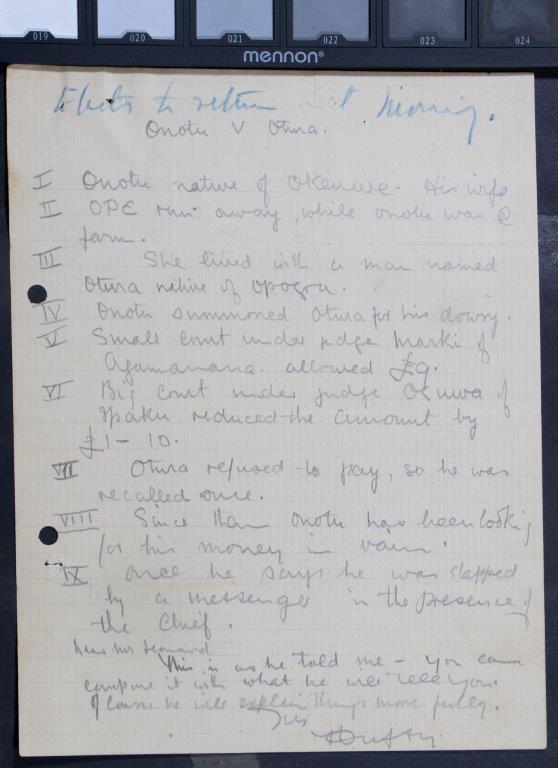 019 020 021 022 023 024
mennon®
to return Sat Morning.
Onotu V Otura.
I Onotu native of Okenwe. His wife
II OPE run away, while onotu was @
farm.
III She lived with a man named
Otura native of opogou.
IV Onotu summoned Otura for his dowry.
V Small court under judge Marki of
Aganana. allowed £9.
VI Big court under judge Okuwa of
Ipaku reduced the amount by
£1 – 10.
VII Otura refused to pay, so he was
recalled once.
VIII Since then Onotu has been looking
for his money in vain.
IX once he says he was slapped
by a messenger in the presence of
the Chief.
Dear Mr
This is as he told me – you can
compare it with what he will tell you.
Of course he will explain things more fully.